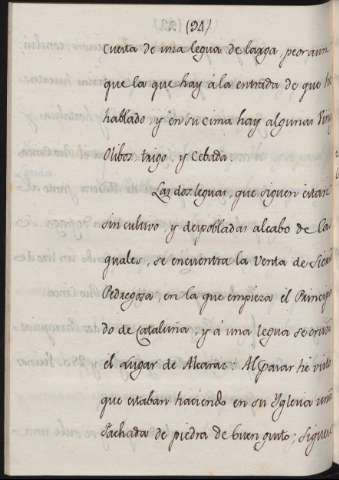 (94)
cuesta de una legua de larga peor aun
que la que hay á la entrada de que hé
hablado, y en su cima hay algunas
Olibos trigo, y Cebada.
Las dos leguas, que siguen estan
sin cultivo, y despobladas al cabo de las
quales, se encuentra la Venta de
Pedregosa en la que empieza el Principa
do de Cataluña, y á una legua se
el Lugar de Alcaraz: Al pasar hé visto
que estaban haciendo en su Yglesia una
fachada de piedra de buen gusto; Sigue